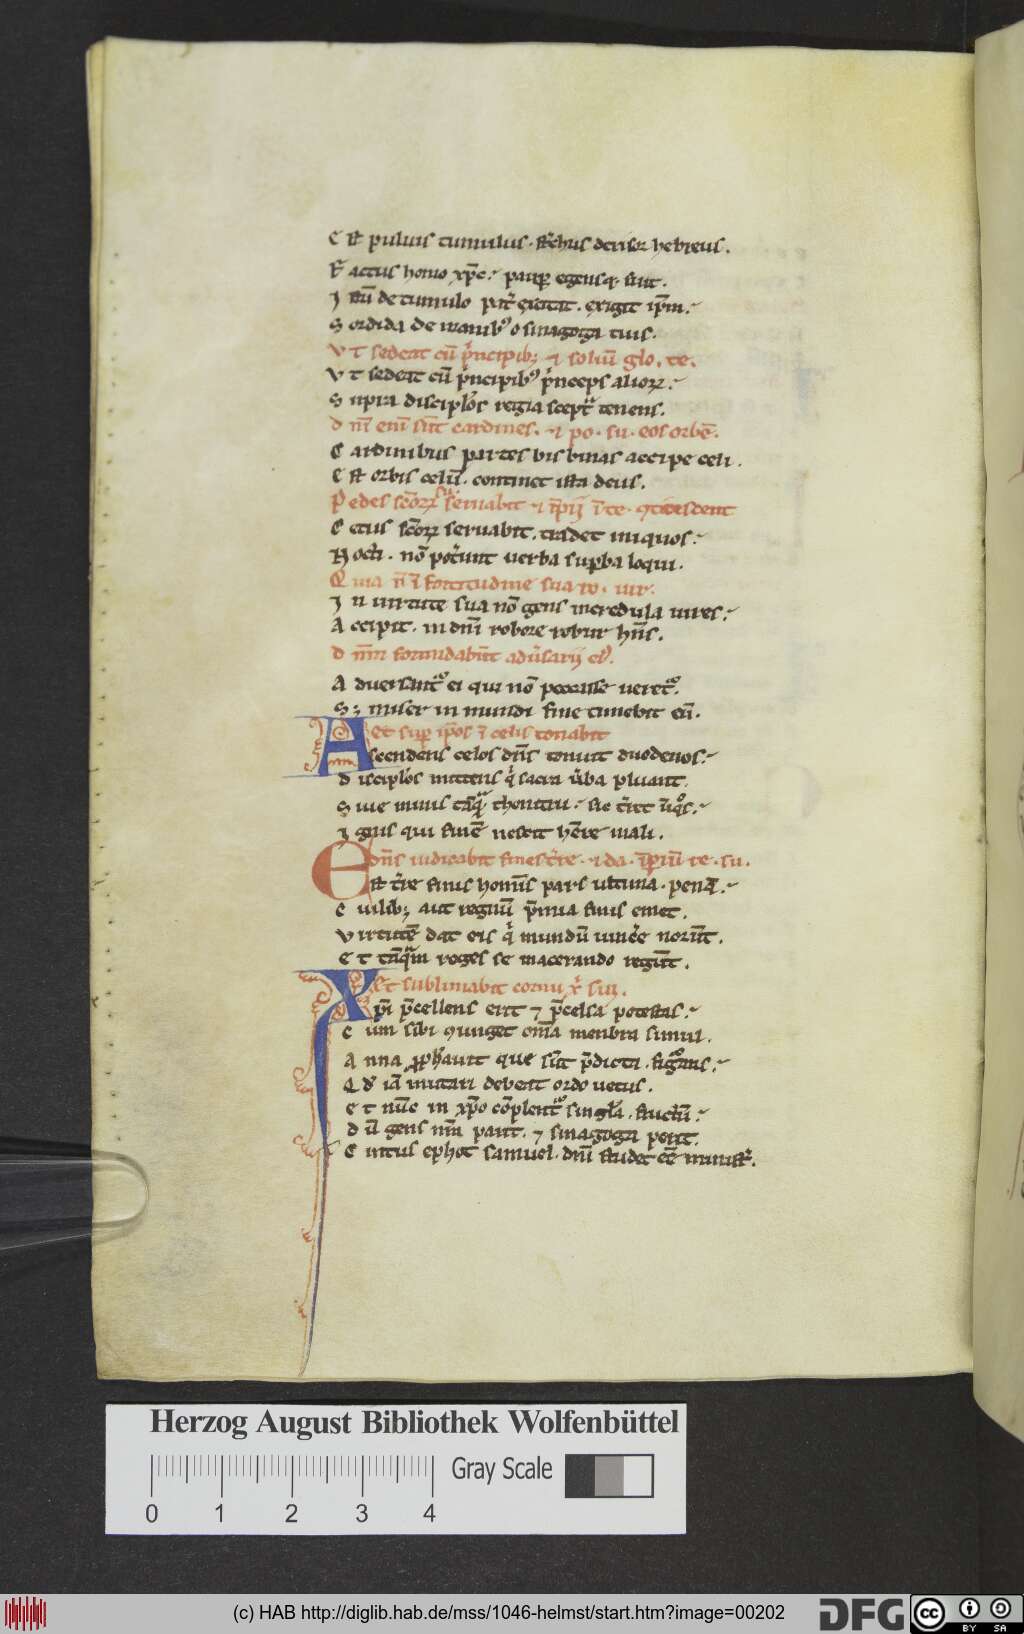 E st puluis tumulus. st̄chus derisꝛ hebreus.
F actus homo xp̄c. paup̄ egensq̢ fuit.
I stū de tumulo pat̄ excitat. exigit ip̄m.
S ordida de manibꝰ o sinagoga tuis.
V T sedeat cū p̄ncipibꝫ ⁊ soliū glo. te.
V t sedeat cū p̄ncipibꝰ p̄nceps alioꝝ.
S upra discipl̄os regia scept̄ tenens.
D n̄i enī sūt cardines. ⁊ po. su. eos orbē.
C ardinibus partes bis binas accipe celi.
E st orbis celū. continet ista deus.
P edes sc̄oꝝ suoꝝ seruabit ⁊ īpij ī te. 
C etus sc̄oꝝ seruabit. tradet iniquos.
N octi. nō pot̄unt uerba suꝑba loqui.
Q uia n̄ ī fortitudine sua ro. uir.
I n uirtute sua nō gens incredula uires.
A ccipit. in dn̄i robore robur hn̄s.
D n̄m formidabūt adū̄sarij eiꝰ.
A duersantꝰ ei qui nō peccasse ueretꝰ.
Sꝫ miser in mundi fine timebit eū.
Et suꝑ ip̄os ī celis tonabit
Ascendens celos dn̄s tonuit duodenos.
D iscipl̄os mittens q̄ sacra ūba pluant.
S iue minis tāq̄ thonitru. sic t̄ret inīq̄os.
I gnis qui finē nescit hēre mali.
Edn̄s iudicabit fines t̄re. ⁊ da. īp̄iū re. su.
Est t̄re finis hominis pars ultima. pena.
C iuilibꝫ aut regnū p̄mia finis emet.
V irtutē dat eis q̄ mundū uinc̄e norūt.
E t tāq̄m reges se macerando regūt.
Et sublimabit cornu x̄ sui.
Xp̄i p̄cellens erit ⁊ p̄celsa potestas.
C um sibi 9iunget om̄ia membra simul.
A nna ꝓph̄auit que sūt p̄dicta. figurans.
Q đ iā mutari debeat ordo uetus.
E t nūc in xp̄o cōplentꝰ singl̄a. fructū.
D ū gens nr̄a parit. ⁊ sinagoga perit.
C intus ephot samuel. dn̄i studet eē ministr̄.
Herzog August Bibliothek Wolfenbüttel
Gray Scale
0 1 2 3 4
(c) HAB http://diglib.hab.de/mss/1046-helmst/start.htm?image=00202
DFG cc BY SA